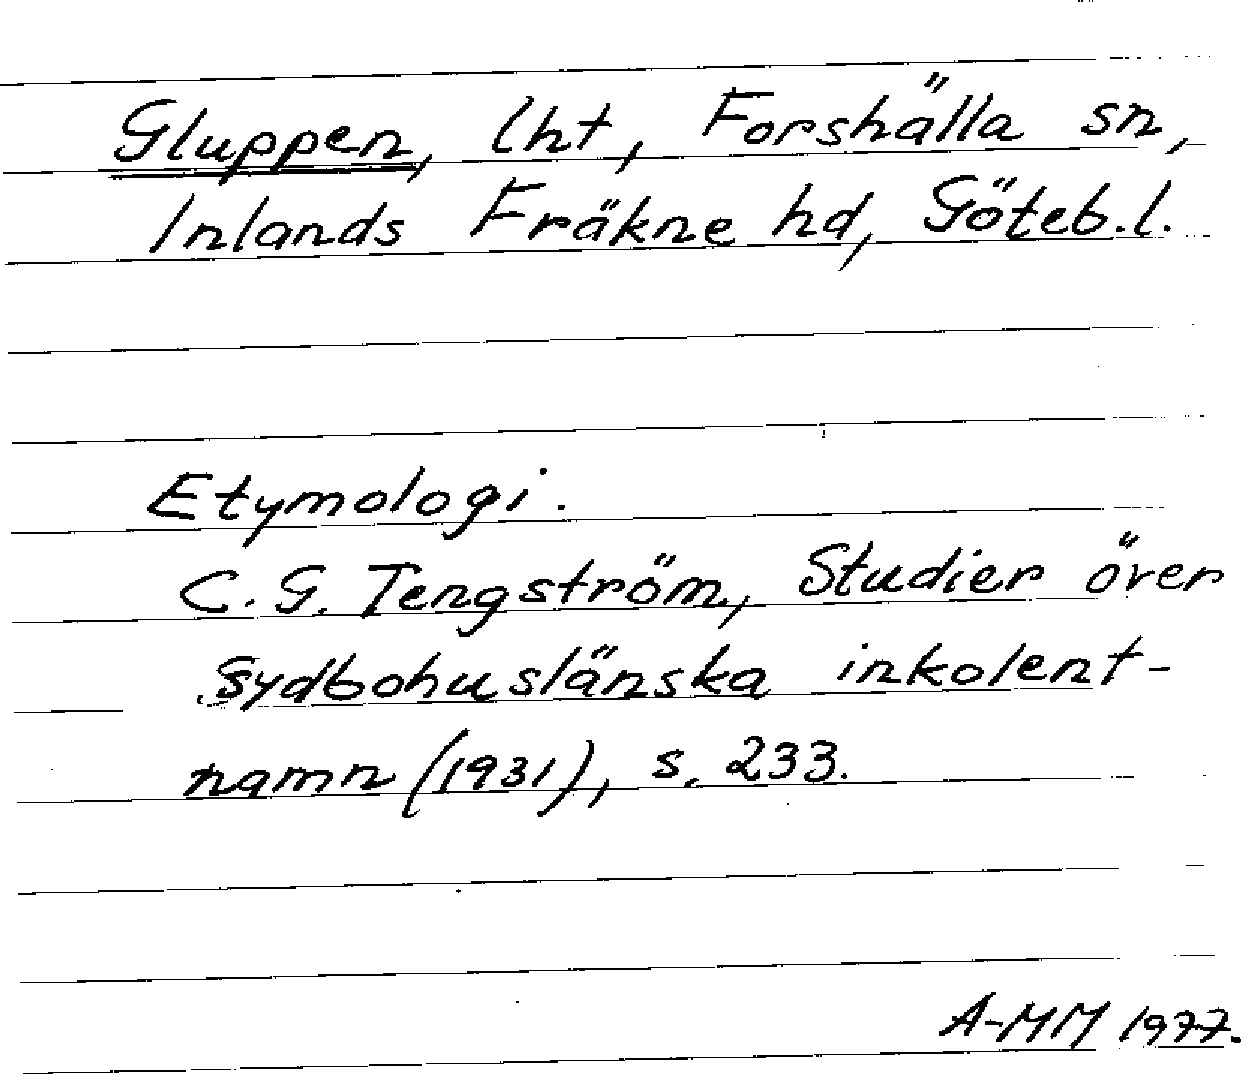 Gluppen, lht, Forshälla sn,
Inlands Fräkne hd, Göteb.l.
Etymologi.
C.G. Tengström, Studier över
sydbohuslänska inkolent-
namn (1931), s. 233.
A-MM 1977.